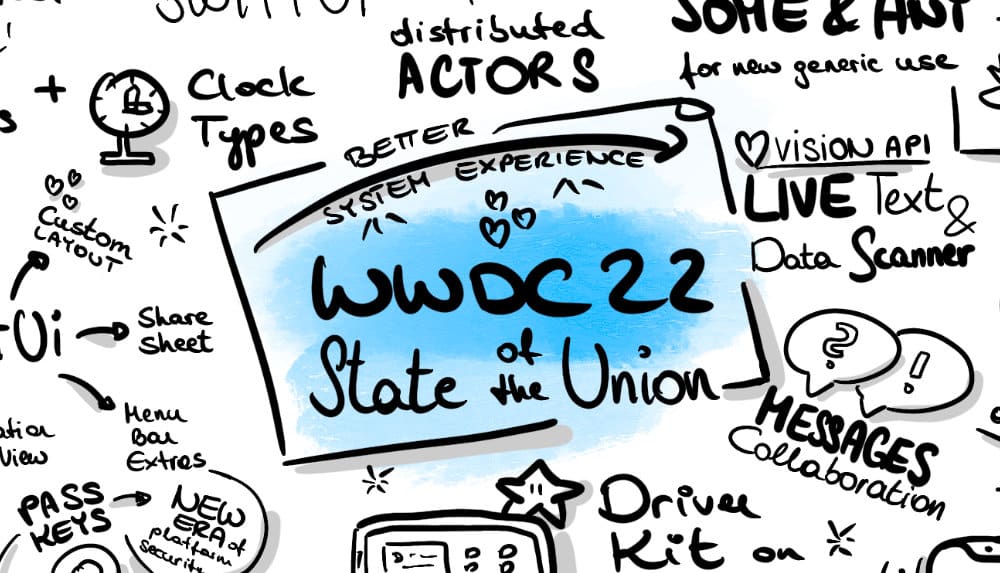 distributed
ACTORS
SOME & ANY
for new generic use
+
Clock
Types
BETTER
SYSTEM EXPERIENCE
WWDC22
State of the Union
vision API
LIVE Text &
Data Scanner
Custom
LAYOUT
Ui
Share
Sheet
Menu
Bar
Extras
View
PASS
KEYS
NEW
ERA of
platform
security
?
!
MESSAGES
Collaboration
Driver
Kit on